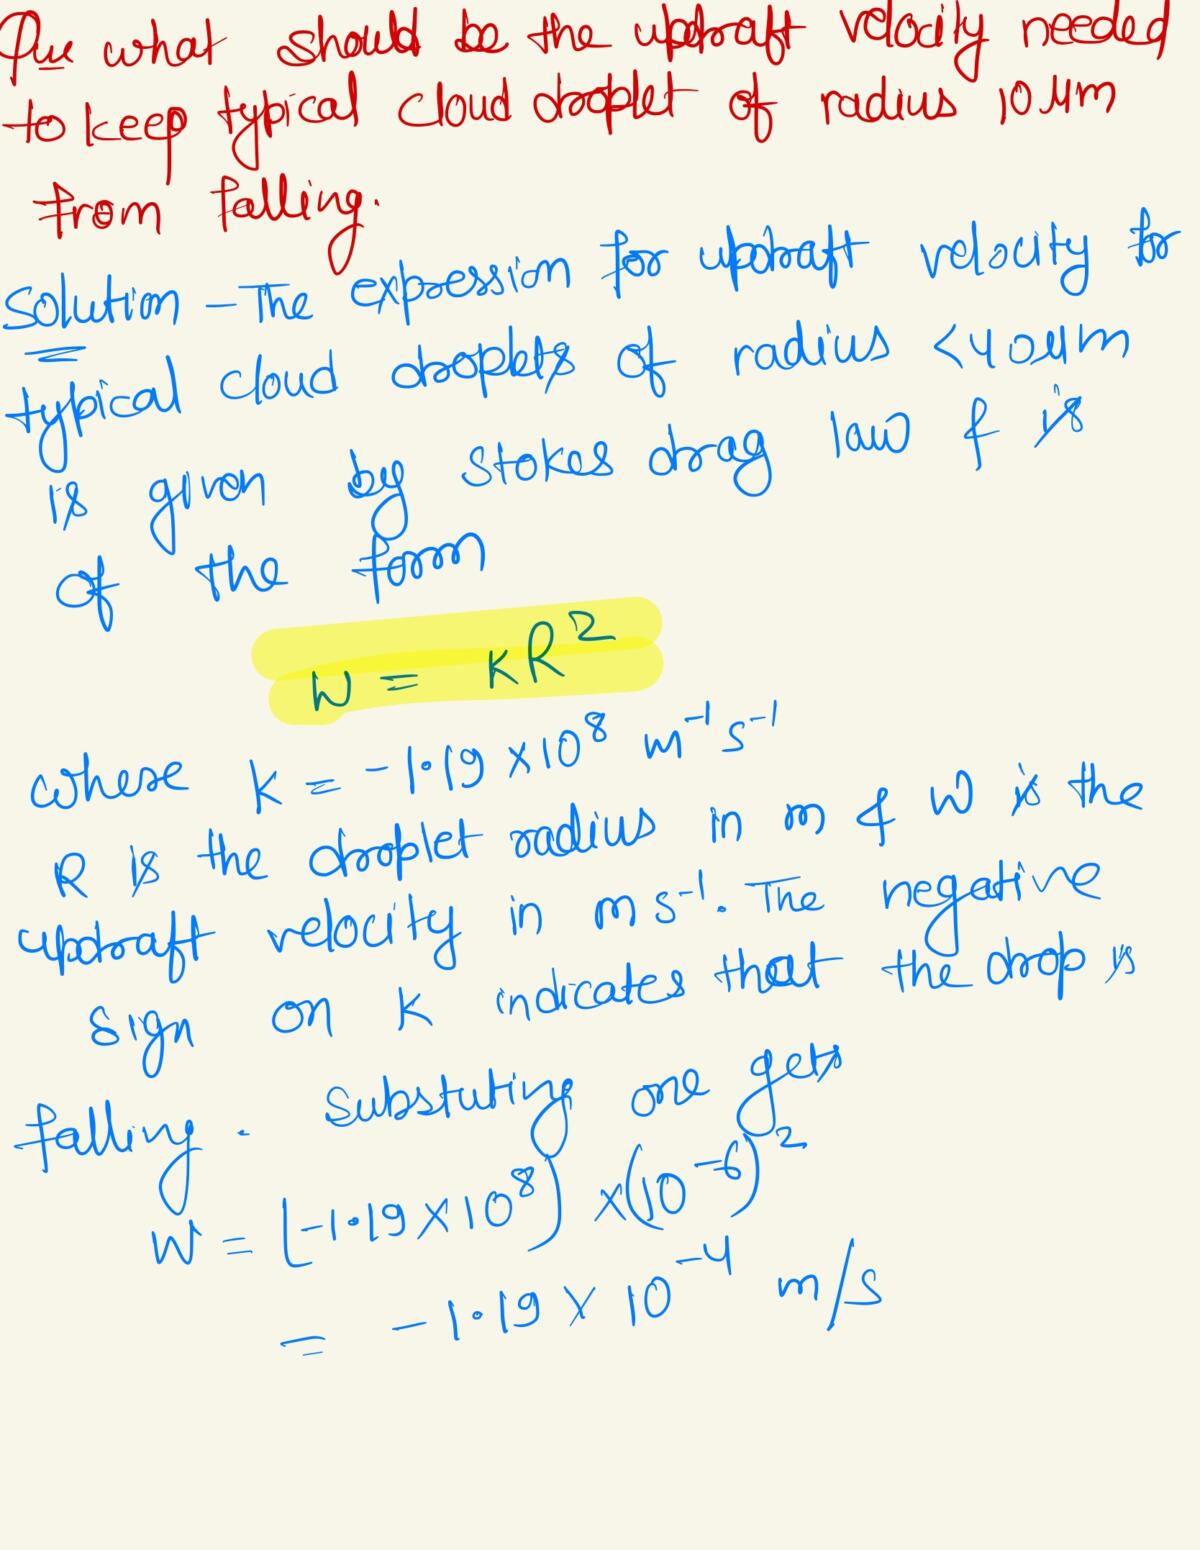 Que what should be the updraft velocity needed
to keep typical cloud droplet of radius 10 μm
from falling.
Solution - The expression for updraft velocity for
typical cloud droplets of radius <40μm
is given by Stokes drag law & is
of the form
W = KR²
where K = -1.19 ×10⁸ m⁻¹ s⁻¹
R is the droplet radius in m & W is the
updraft velocity in m s⁻¹. The negative
sign on K indicates that the drop is
falling. Substuting one gets
W = (-1.19 × 10⁸) × (10⁻⁶)²
= -1.19 × 10⁻⁴ m/s